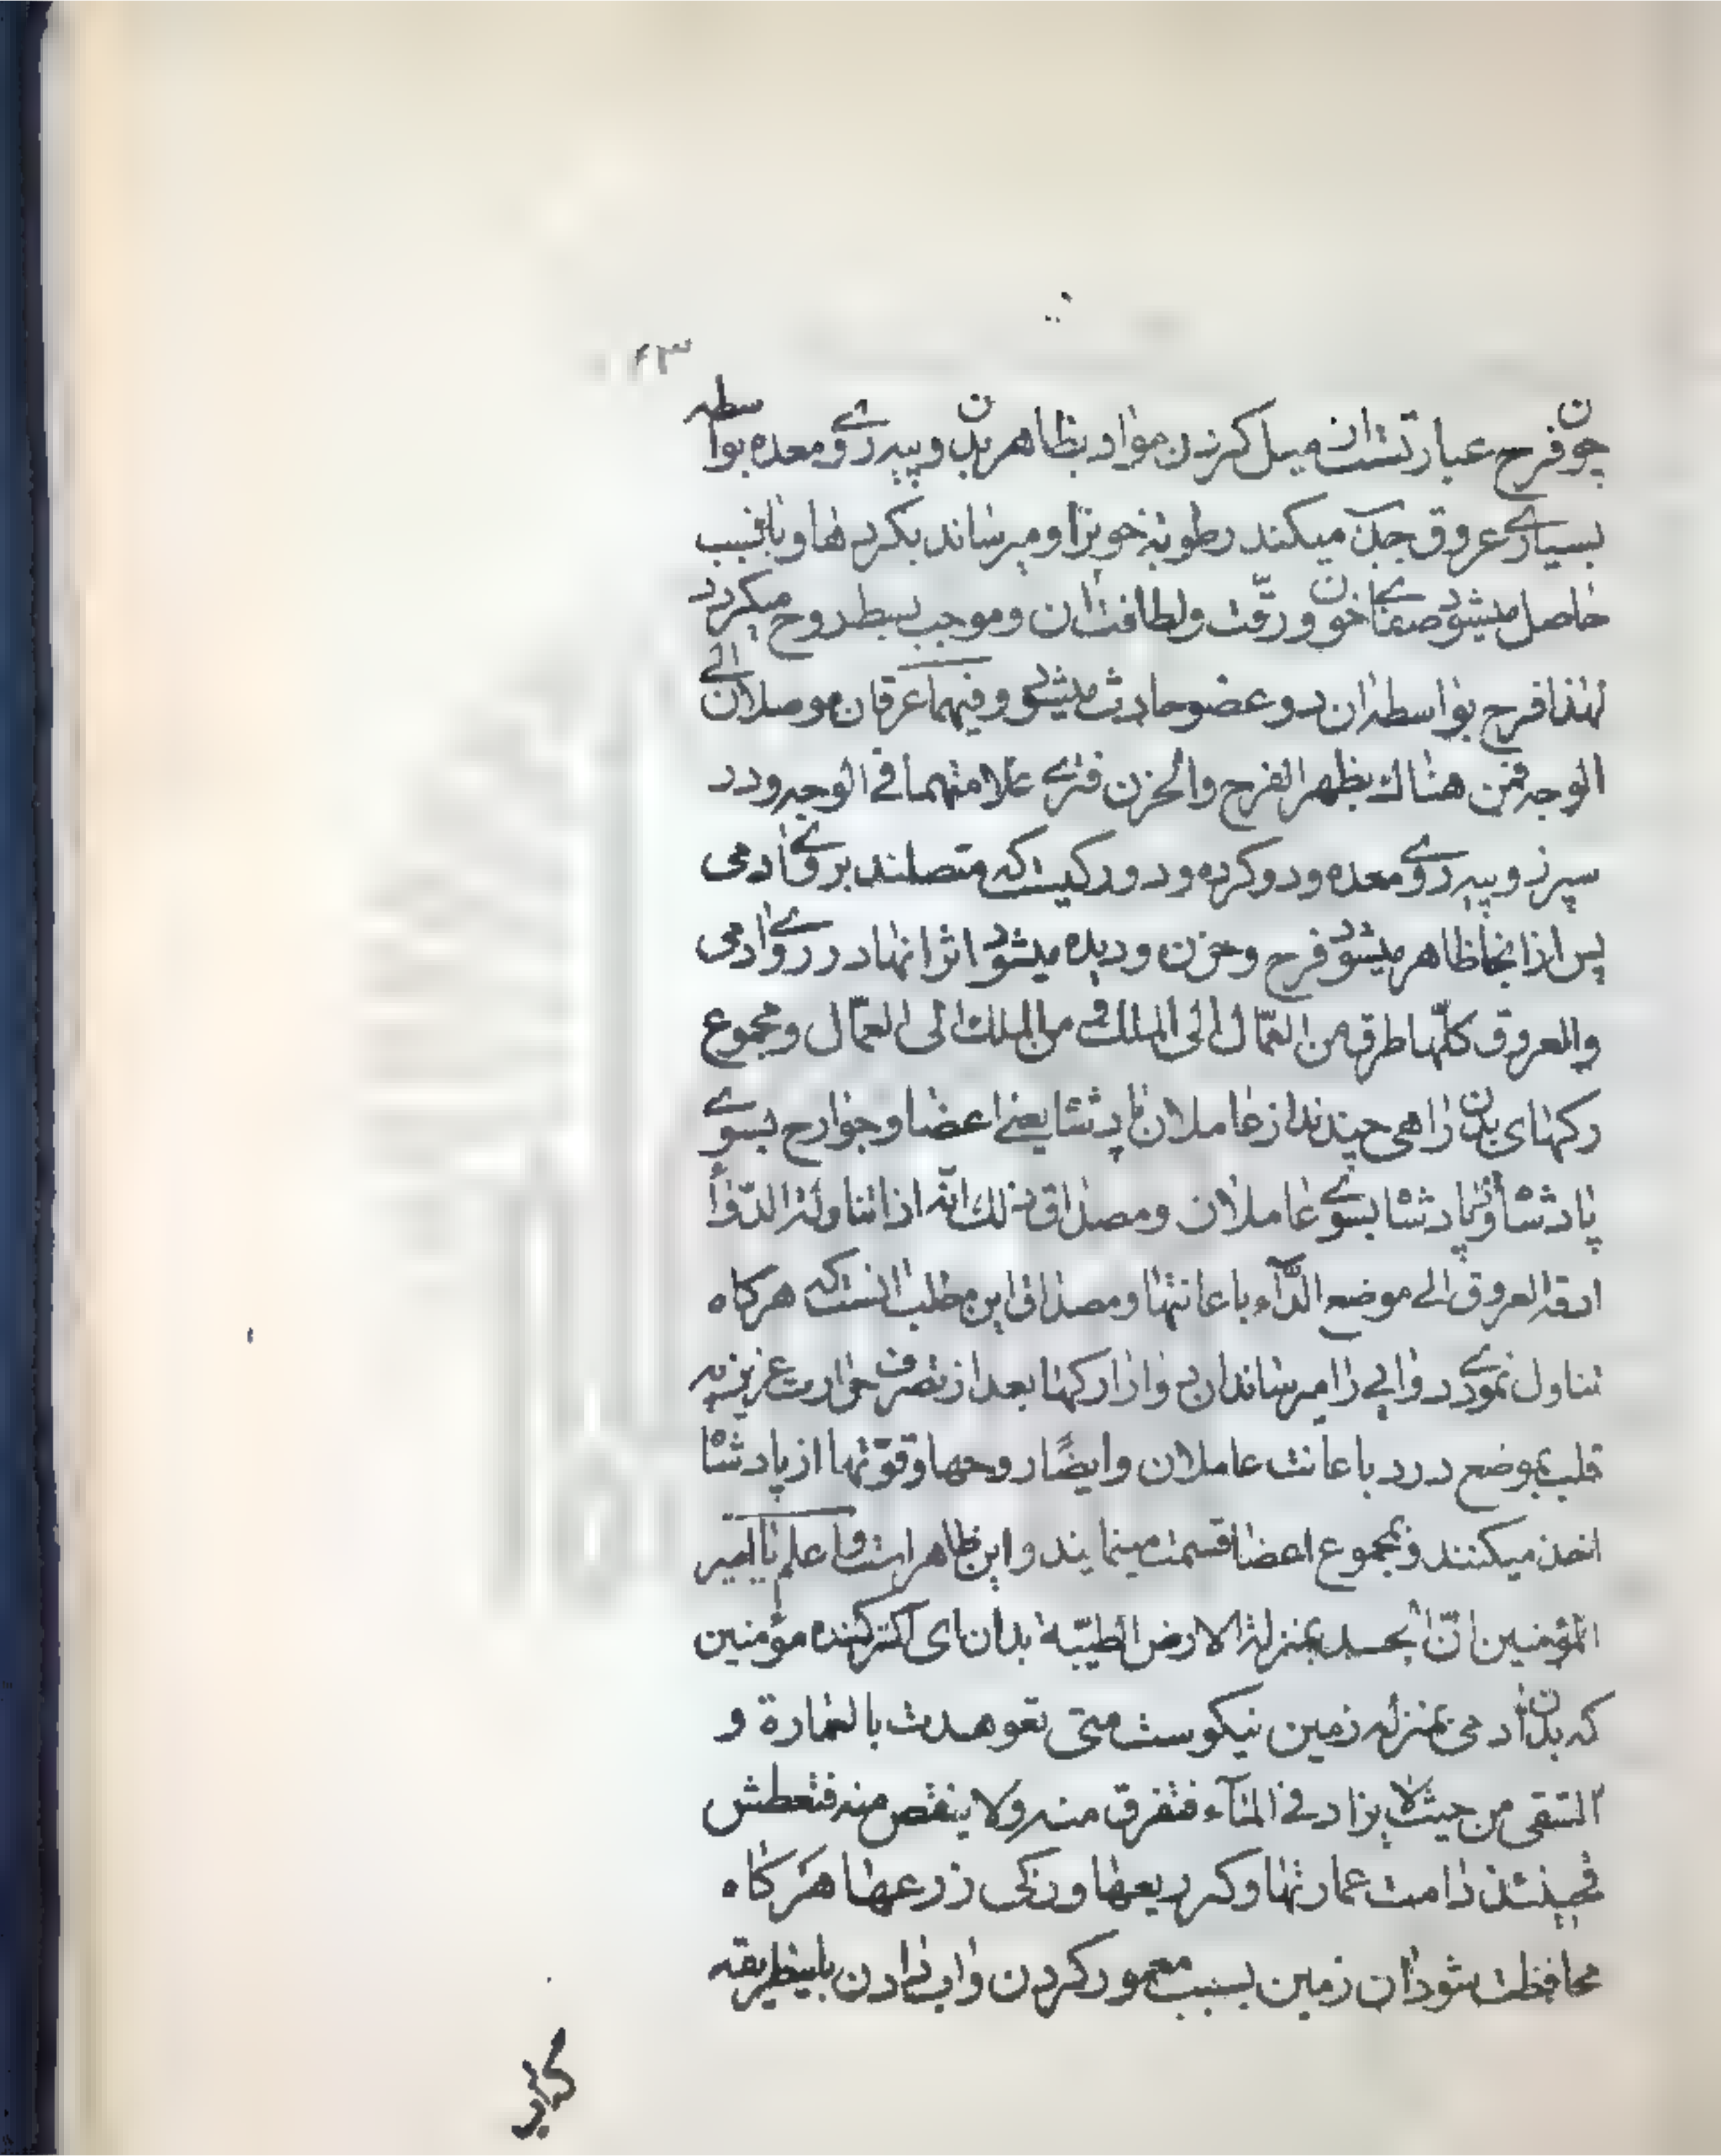 ۲۳
چون فرح عبارتست از میل کردن مواد بظاهر بدن و پیه روی معده بواسطه
بسیاری عروق جذب میکند رطوبة خونرا و میرساند بکرده ها و باینسبب
حاصل میشود صفای خون و رقّت و لطافت ان و موجب بسط روح میکردد
لهذا فرح بواسطه ان دو عضو حادث میشود و فیهما عرقان موصلان الی
الوجه فمن هناك یظهر الفرح والحزن فتری علامتهما فی الوجه و در
سپرز و پیه روی معده و دو کرده و دو رکیست که متصلند بروی ادمی
پس ازانجا ظاهر میشود فرح و حزن و دیده میشود اثر انها در روی ادمی
والعروق کلّها طرق من العمّال الی الملك و من الملك الی العمّال و مجموع
رکهای بدن راهی چندند از عاملان پادشا یعنی اعضا و جوارح بسوی
پادشا و از پادشا بسوی عاملان و مصداق ذلك انّه اذا تناولت الدّوآء
ادته العروق الی موضع الدّآء باعانتها و مصداق این مطلب انست که هرکاه
تناول نمودی دوایی را میرسانند ان دوا را رکها بعد از تصرف حرارت غریزیه
قلب بموضع درد باعانت عاملان و ایضًا روحها و قوّتها از پادشا
اخذ میکنند و بمجموع اعضا قسمت مینمایند و این ظاهر است و اعلم یا امیر
المؤمنین انّ الجسد بمنزلة الارض الطیّبة بدان ای اکثر کننده مؤمنین
که بدن ادمی بمنزله زمین نیکوست متی تعوهدت بالعمارة و
السقی من حیث لا یزاد فی المآء فتغرق منه ولا ینقص منه فتعطش
فحینئذ دامت عمارتها و کثر ریعها و زکی زرعها هرکاه
محافظت شود ان زمین بسبب معمور کردن و اب دادن باینطریقه